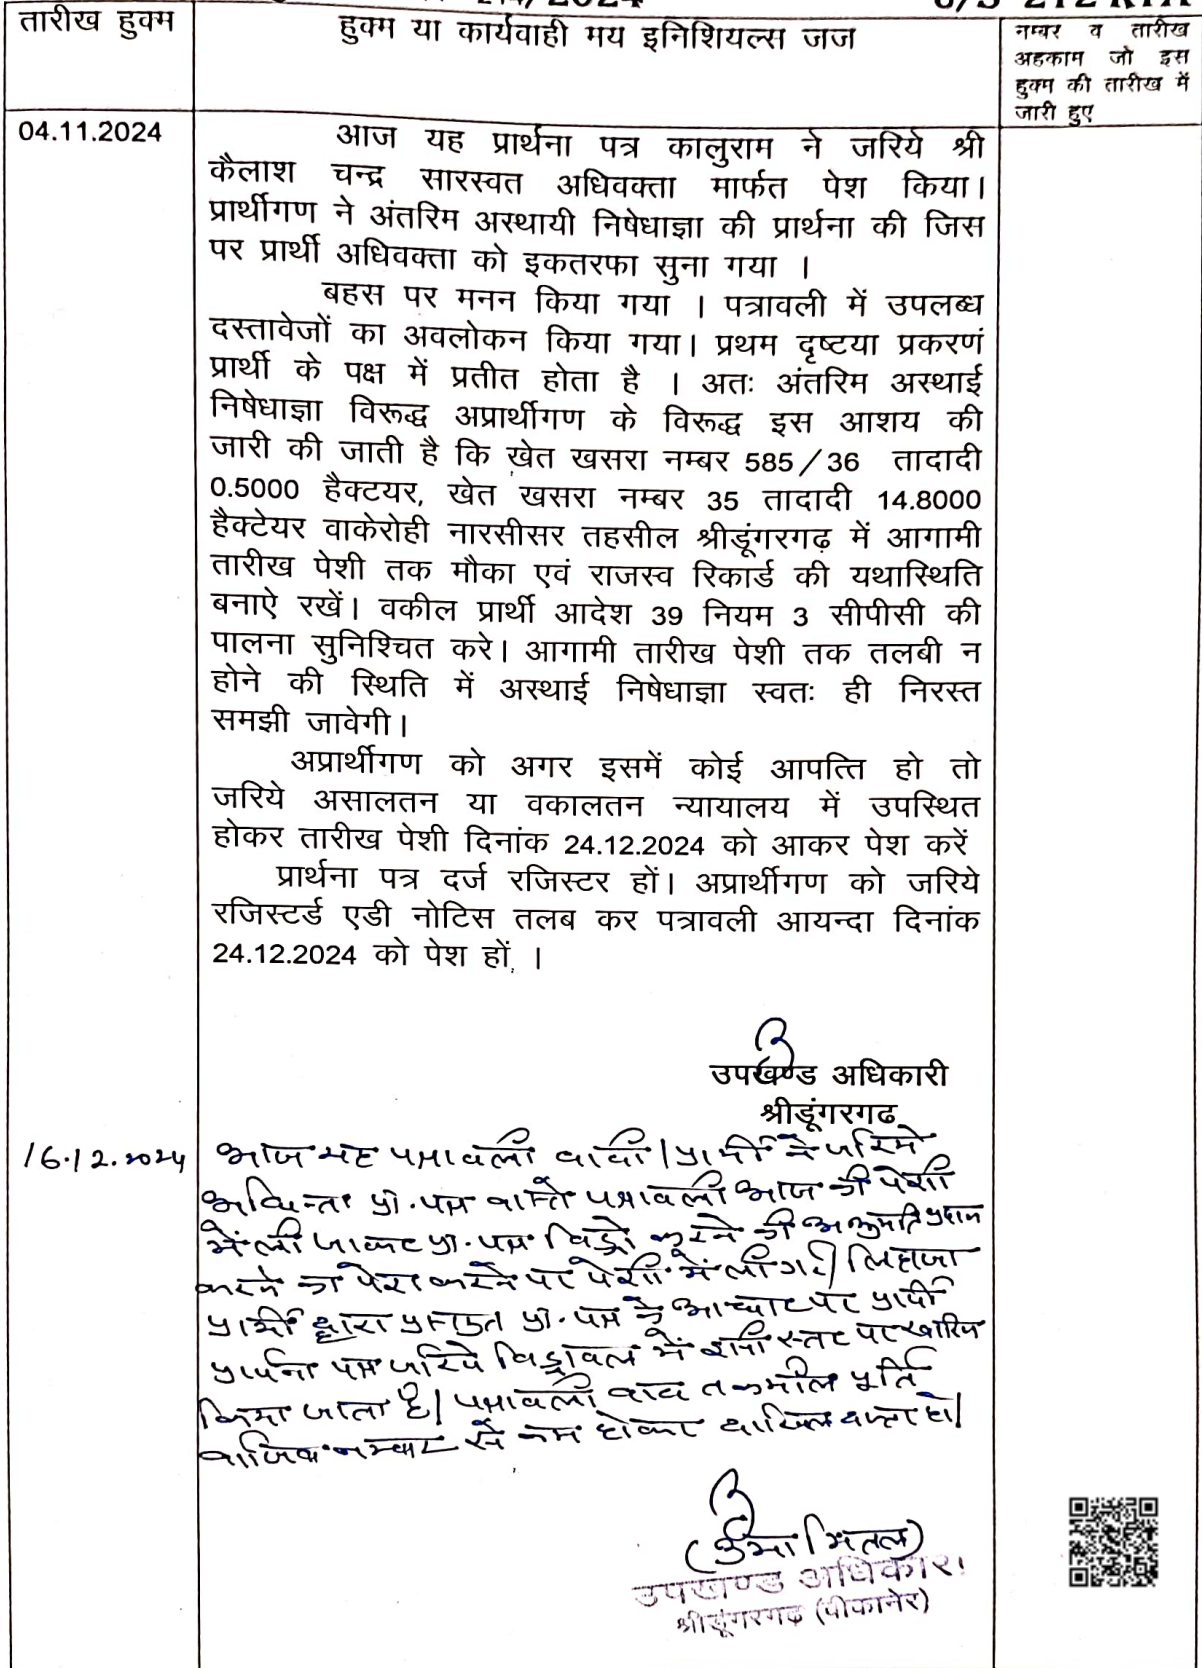 /2024
U/S 212 RTA
तारीख हुक्म
हुक्म या कार्यवाही मय इनिशियल्स जज
नम्बर व तारीख
अहकाम जो इस
हुक्म की तारीख में
जारी हुए
04.11.2024
आज यह प्रार्थना पत्र कालुराम ने जरिये श्री
कैलाश चन्द्र सारस्वत अधिवक्ता मार्फत पेश किया।
प्रार्थीगण ने अंतरिम अस्थायी निषेधाज्ञा की प्रार्थना की जिस
पर प्रार्थी अधिवक्ता को इकतरफा सुना गया ।
बहस पर मनन किया गया । पत्रावली में उपलब्ध
दस्तावेजों का अवलोकन किया गया। प्रथम दृष्टया प्रकरणं
प्रार्थी के पक्ष में प्रतीत होता है । अतः अंतरिम अस्थाई
निषेधाज्ञा विरूद्ध अप्रार्थीगण के विरूद्ध इस आशय की
जारी की जाती है कि खेत खसरा नम्बर 585/36 तादादी
0.5000 हैक्टयर, खेत खसरा नम्बर 35 तादादी 14.8000
हैक्टेयर वाकेरोही नारसीसर तहसील श्रीडूंगरगढ़ में आगामी
तारीख पेशी तक मौका एवं राजस्व रिकार्ड की यथास्थिति
बनाऐ रखें। वकील प्रार्थी आदेश 39 नियम 3 सीपीसी की
पालना सुनिश्चित करे। आगामी तारीख पेशी तक तलबी न
होने की स्थिति में अस्थाई निषेधाज्ञा स्वतः ही निरस्त
समझी जावेगी।
अप्रार्थीगण को अगर इसमें कोई आपत्ति हो तो
जरिये असालतन या वकालतन न्यायालय में उपस्थित
होकर तारीख पेशी दिनांक 24.12.2024 को आकर पेश करें
प्रार्थना पत्र दर्ज रजिस्टर हों। अप्रार्थीगण को जरिये
रजिस्टर्ड एडी नोटिस तलब कर पत्रावली आयन्दा दिनांक
24.12.2024 को पेश हों, ।
उपखण्ड अधिकारी
श्रीडूंगरगढ
16.12.2024
आज यह पत्रावली वादी/प्रार्थी ने जरिये
प्रा.पत्र वास्ते पत्रावली आज की पेशी
में ली जाकर प्रा.पत्र विड्रो करने की अनुमति प्रदान
करने का पेश करने पर पेशी में ली गई। लिहाजा
प्रार्थी द्वारा प्रस्तुत प्रा.पत्र के आधार पर प्रार्थी
प्रार्थना पत्र जरिये विड्रावल में इसी स्तर पर खारिज
किया जाता है। पत्रावली बाद तकमील पूर्ति
नम्बर से कम होकर दाखिल दफ्तर हो।
(उमा मितल)
उपखण्ड अधिकारी
श्रीडूंगरगढ़ (बीकानेर)